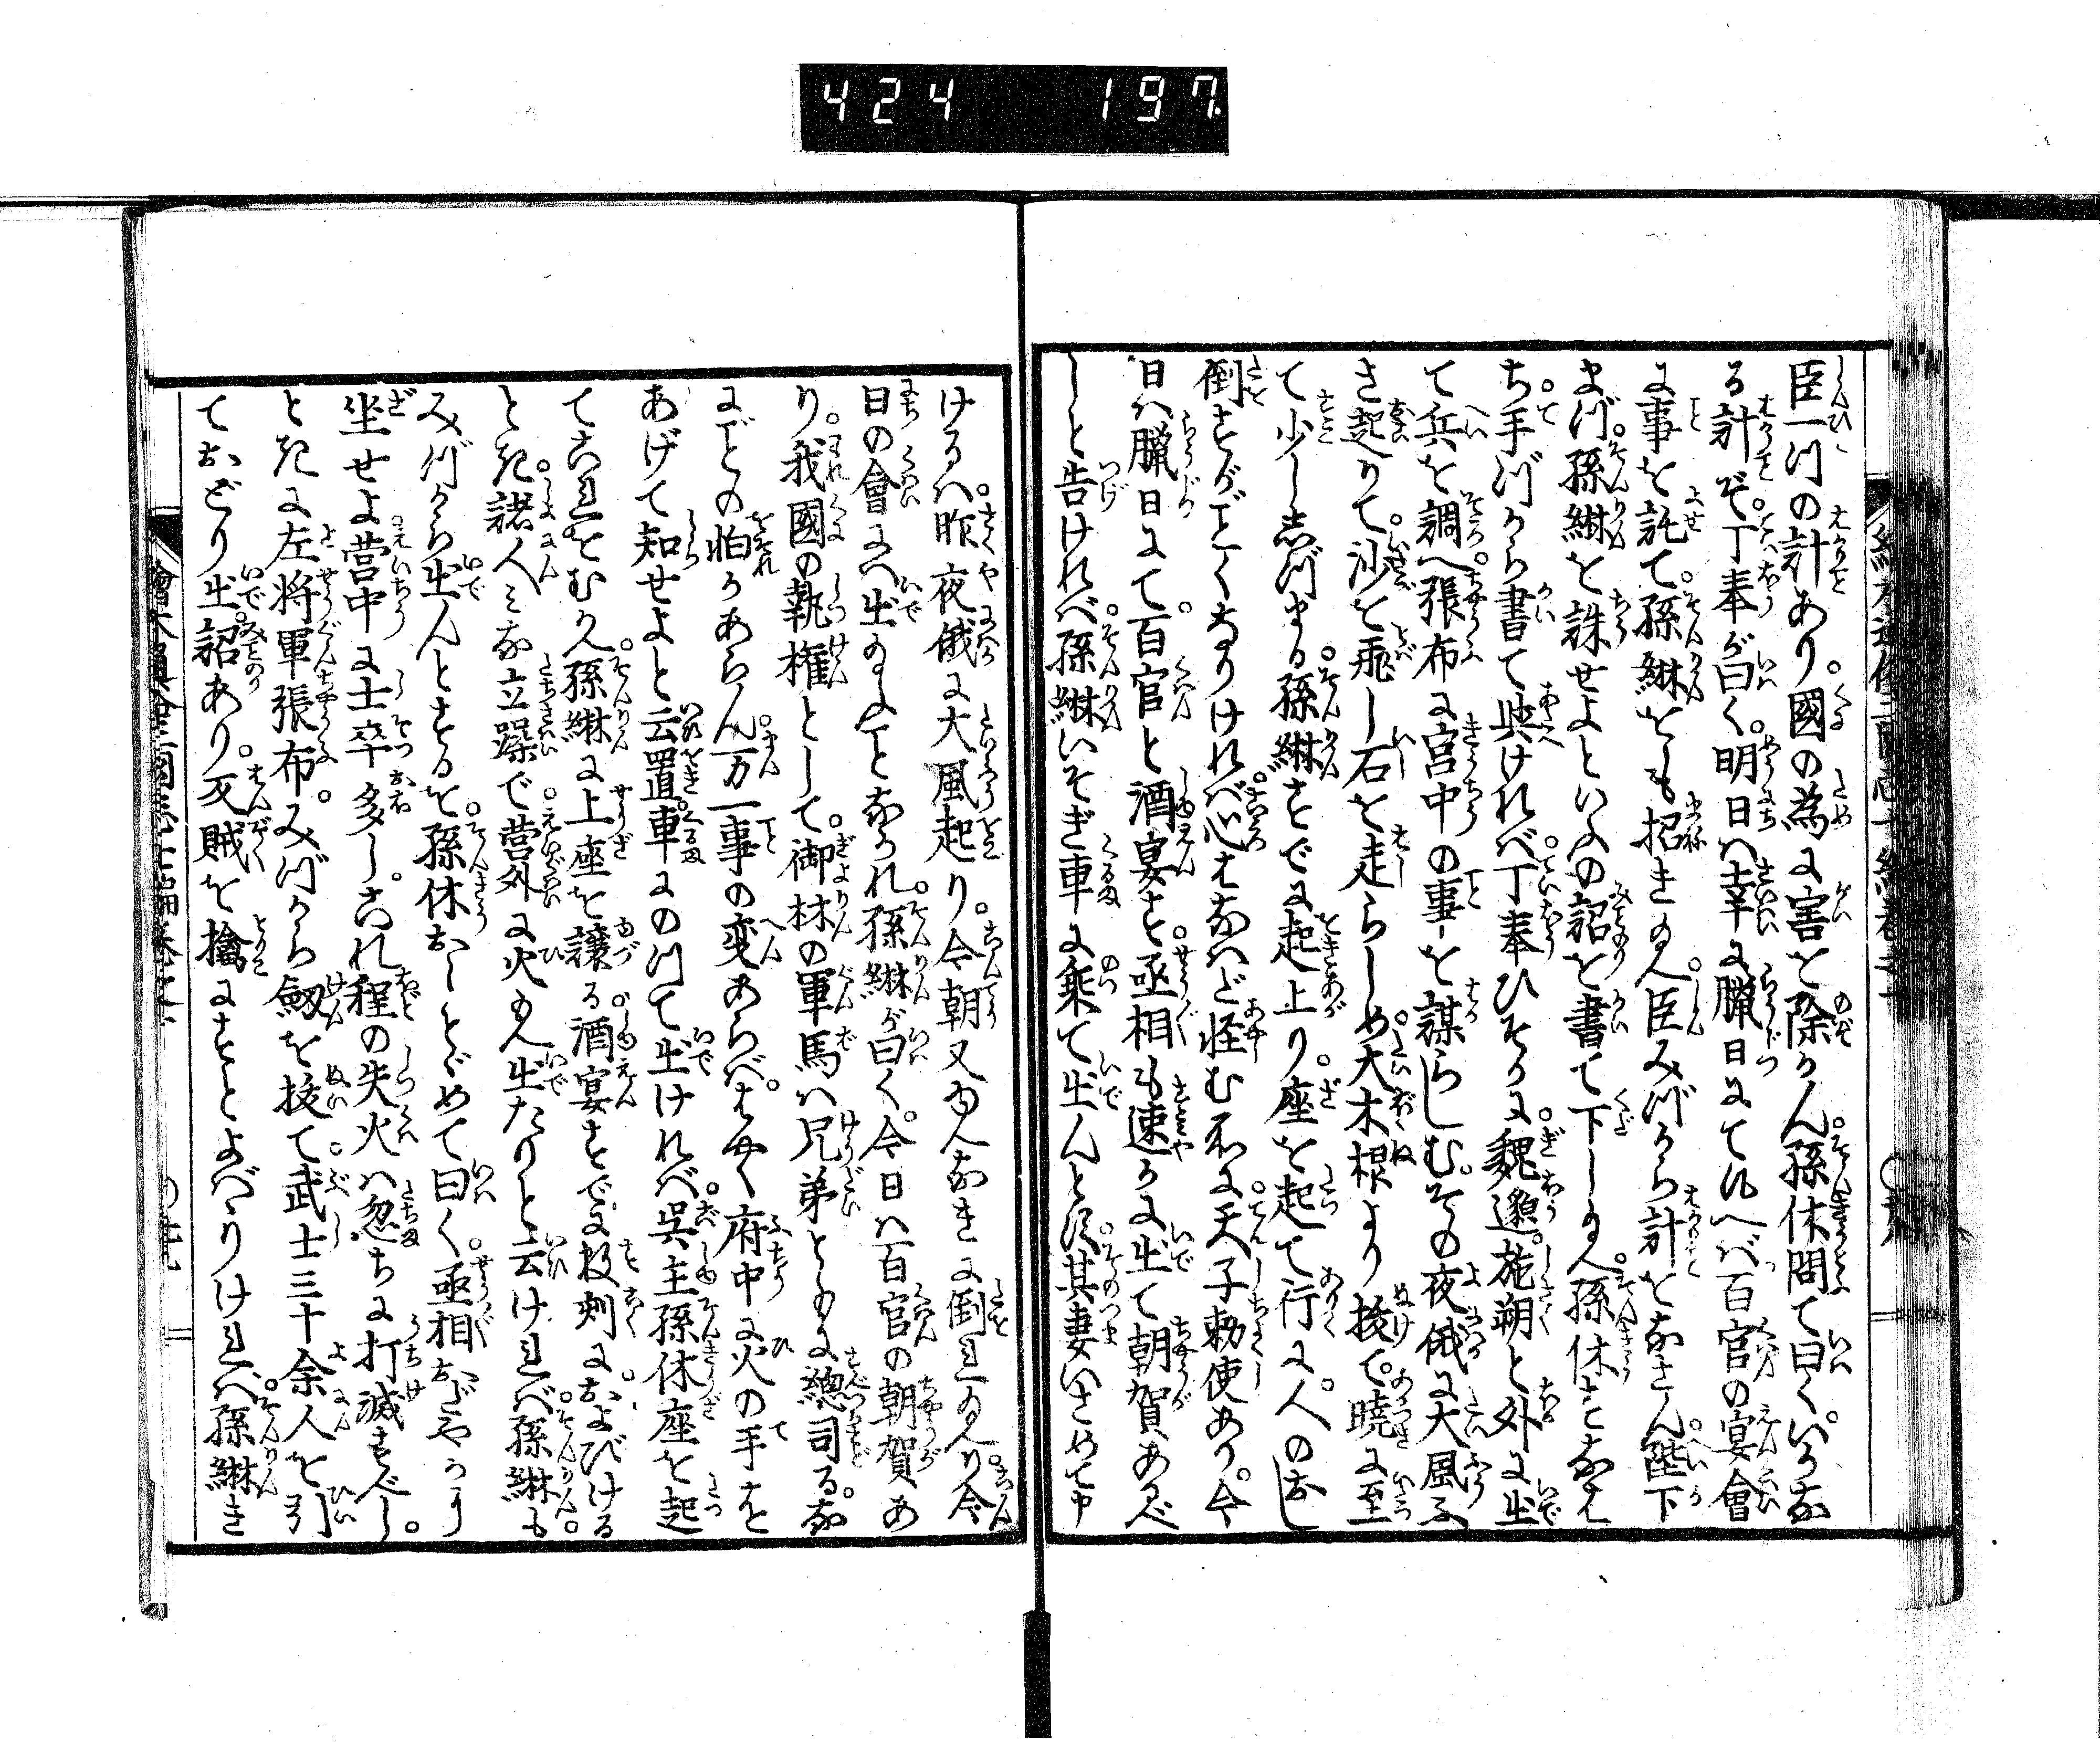 424 197
臣一ツの計あり。國の為に害を除かん。孫休問て曰く。いかな
る計ぞ。丁奉が曰く。明日は幸に臘日にて候へば百官の宴會
に事を託て。孫綝をも招き給へ。臣みづから計をなさん。陛下
まづ。孫綝を誅せよといふの詔を書て下し給へ。孫休すなは
ち。手づから書て與けれバ。丁奉ひそかに。魏邈。施朔と外に出
て兵を調へ。張布に宮中の事を謀らしむ。その夜俄に大風ふ
き起りて。沙を飛し石を走らしめ。大木根より抜て。暁に至
て少ししづまる。孫綝すでに起上り。座を起て行に。人のおし
倒すがごとくなりけれバ。心はなはだ怪む処に。天子勅使あり。今
日ハ臘日にて。百官と酒宴す。丞相も速かに出て朝賀あるべ
しと告けれバ。孫綝いそぎ車に乗て出んとす。其妻いさめて申
けるハ。昨夜俄に大風起り。今朝又ゆへなきに倒れ給へり。今
日の會にハ出給ふことなかれ。孫綝が曰く。今日ハ百官の朝賀あ
り。我國の執権として。御林の軍馬ハ兄弟ともに總司る。な
にごとの怕かあらん。万一事の変あらバ。はやく府中に火の手を
あげて知せよと云置。車にのつて出けれバ。呉主孫休座を起
てこれをむかへ。孫綝に上座を譲る。酒宴すでに数刻におよびける
とき。諸人みな立躁で。営外に火もへ出たりと云けれバ。孫綝も
みづから出んとするを。孫休おしとゞめて曰く。丞相おだやかに
坐せよ。営中に士卒多し。これ程の失火ハ忽ちに打滅すべし。
ときに左将軍張布。みづから劔を抜て。武士三十余人を引
ておどり出。詔あり。反賊を擒にすとよバゝりけれバ。孫綝き